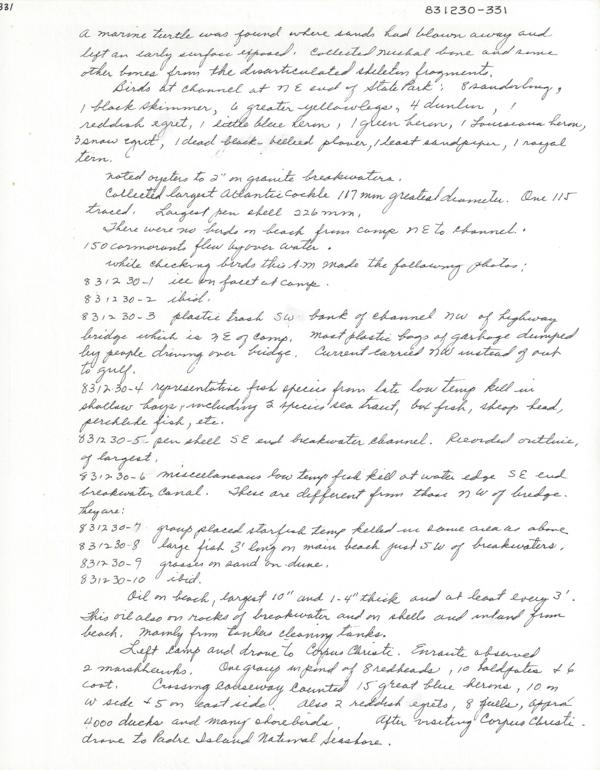 331
831230-331
A marine turtle was found where sands had blown away and
left an early surface exposed. Collected nuchal bone and some
other bones from the disarticulated skeleton fragments.
Birds at channel at NE end of State Park: 8 sanderling,
1 black skimmer, 6 greater yellowlegs, 4 dunlin, 1
reddish egret, 1 little blue heron, 1 green heron, 1 Louisiana heron,
3 snow egret, 1 dead black-bellied plover, 1 least sandpiper, 1 royal
tern.
noted oysters to 2" on granite breakwaters.
Collected largest Atlantic Cockle 117 mm greatest diameter. One 115
traced. Largest pen shell 226 mm.
There were no birds on beach from camp NE to channel.
150 cormorants flew by over water.
While checking birds this A.M made the following photos:
831230-1 ice on facet at camp.
831230-2 ibid.
831230-3 plastic trash SW bank of channel NW of highway
bridge which is NE of camp. Most plastic bags of garbage dumped
by people driving over bridge. Current carried NW instead of out
to gulf.
831230-4 representative fish species from late low temp kill in
shallow bays, including 2 species sea trout, box fish, sheep head,
perchlike fish, etc.
831230-5 pen shell SE end breakwater channel. Recorded outline,
of largest.
831230-6 miscellaneous low temp fish kill at water edge SE end
breakwater canal. These are different from those NW of bridge.
they are:
831230-7 group placed starfish temp killed in same area as above
831230-8 large fish 3' long on main beach just SW of breakwaters.
831230-9 grasses on sand on dune.
831230-10 ibid.
Oil on beach, largest 10" and 1-4" thick and at least every 3'.
This oil also on rocks of breakwater and on shells and inland from
beach. Mainly from tankers cleaning tanks.
Left camp and drove to Corpus Christi. Enroute observed
2 marshhawks. One group in pond of 8 redheads, 10 baldpates & 6
coot. Crossing causeway counted 15 great blue herons, 10 on
W side & 5 on east side. Also 2 reddish egrets, 8 gulls,
4000 ducks and many shorebirds. After visiting Corpus Christi
drove to Padre Island National Seashore.